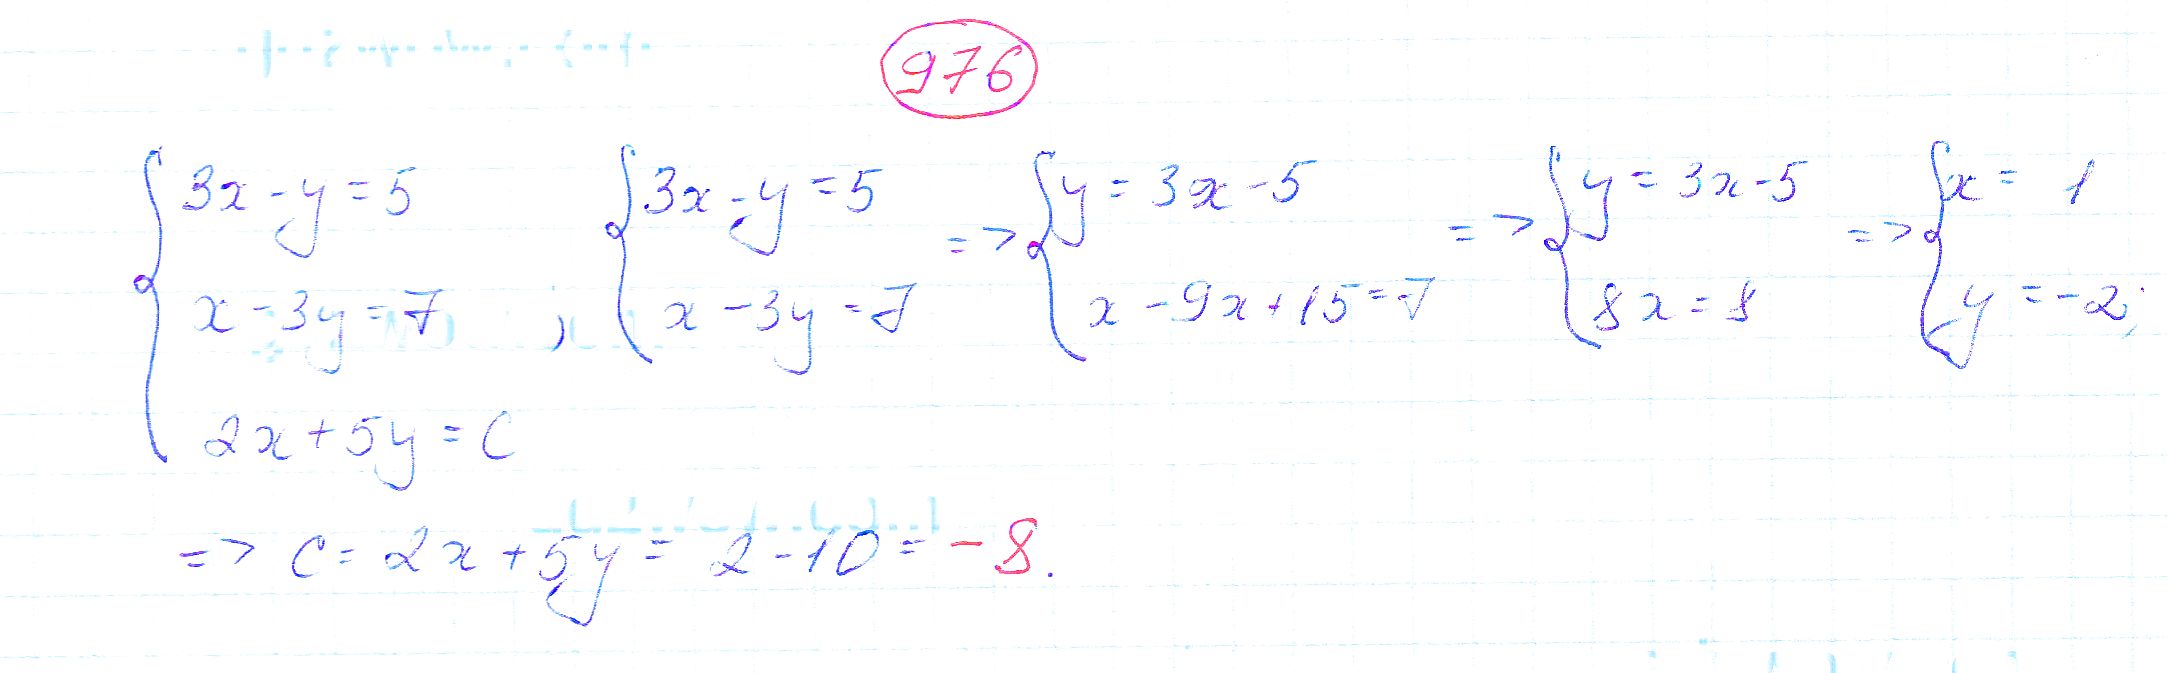 976
3x - y = 5
x - 3y = 7 ;
2x + 5y = C
3x - y = 5
x - 3y = 7
=> y = 3x - 5
x - 9x + 15 = 7
=> y = 3x - 5
8x = 8
=> x = 1
y = -2;
=> C = 2x + 5y = 2 - 10 = -8.